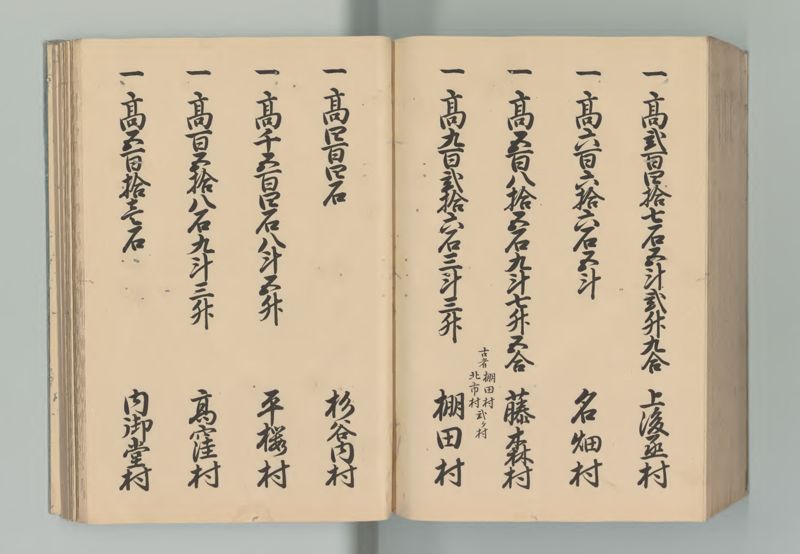 一 高弐百四拾七石五斗弐升九合 上後亟村
一 高六百六拾六石五斗 名畑村
一 高五百八拾五石九斗七升五合 藤木森村
古者棚田村
北市村弐ヶ村
一 高九百弐拾六石三斗三升 棚田村
一 高四百四石 杉谷内村
一 高千五百四石八斗五升 平櫻村
一 高百五拾八石九斗三升 高窪村
一 高五百拾壱石 内御堂村